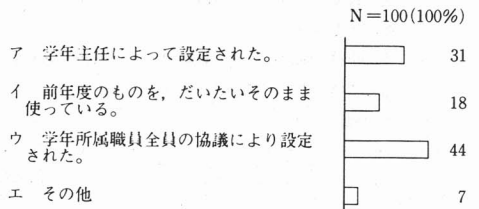 N＝100(100%)
ア　学年主任によって設定された。　31
イ　前年度のものを，だいたいそのまま
使っている。　18
ウ　学年所属職員全員の協議により設定
された。　44
エ　その他　7